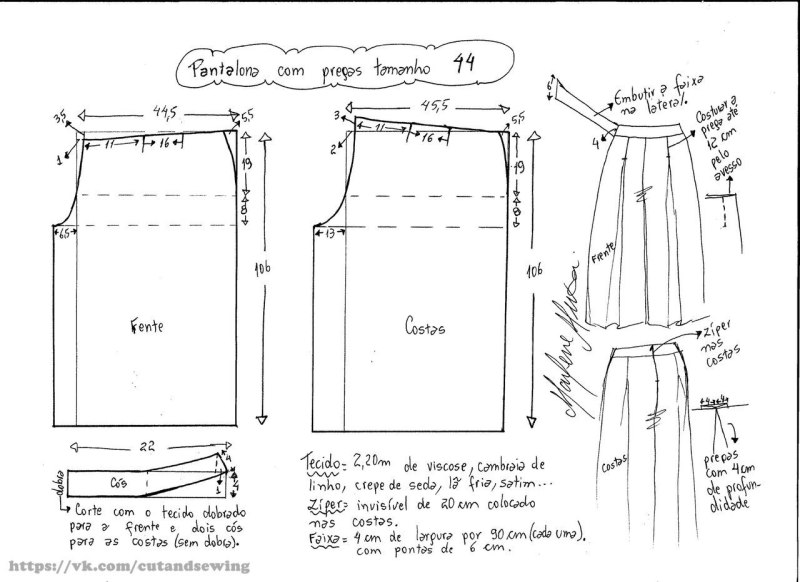 Pantalona com pregas tamanho 44
44,5
3,5
5,5
1
11
16
19
8
6,5
106
Frente
45,5
3
5,5
2
11
16
19
8
13
106
Costas
6
Embutir a faixa
na lateral.
4
Costurar a
prega até
12 cm
pelo
avesso
Frente
Marlene Mukai
zíper
nas
costas
costas
4 4
pregas
com 4cm
de profun-
didade
22
4
1
4
dobra
Cós
Corte com o tecido dobrado
para a frente e dois cós
para as costas (sem dobra).
Tecido= 2,20m de viscose, cambraia de
linho, crepe de seda, lã fria, satim...
Zíper= invisível de 20 cm colocado
nas costas.
Faixa= 4 cm de largura por 90 cm (cada uma).
com pontas de 6 cm.
https://vk.com/cutandsewing